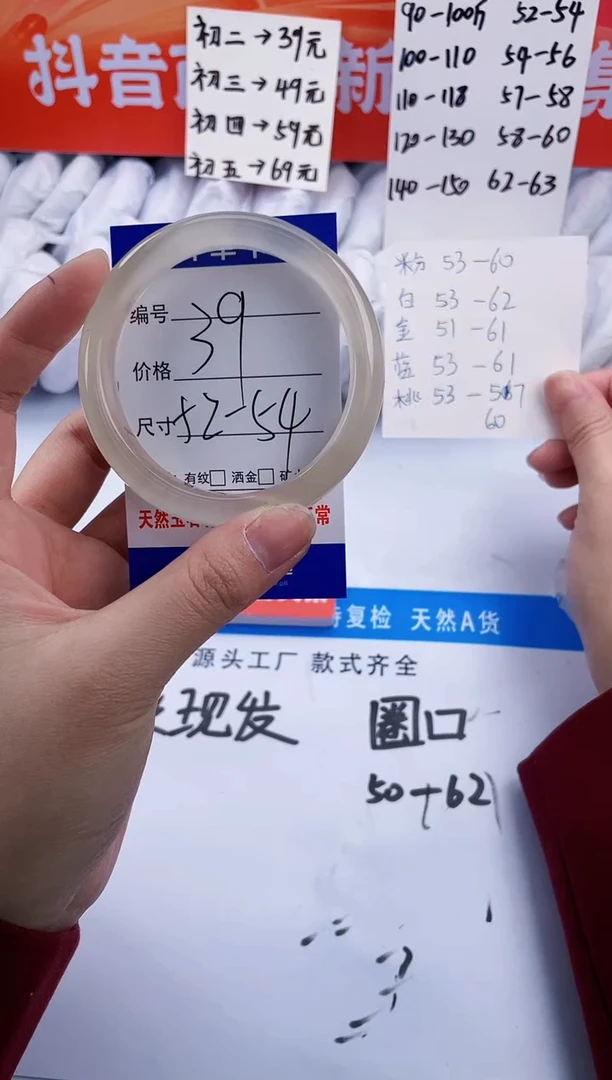 抖音
新
集
初二→39元
初三→49元
初四→59元
初五→69元
90-100斤 52-54
100-110 54-56
110-118 57-58
120-130 58-60
140-150 62-63
粉 53-60
白 53-62
金 51-61
蓝 53-61
桃 53-57
60
编号
39
价格
尺寸 52-54
有纹□ 洒金□ 矿
天然玉石
常
持复检 天然A货
源头工厂 款式齐全
现发
圈口
50+62